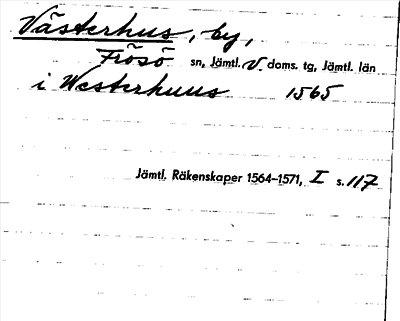 Västerhus, by,
Frösö sn, Jämtl. V. doms. tg, Jämtl. län
i Westerhuus 1565
Jämtl. Räkenskaper 1564–1571, I s. 117